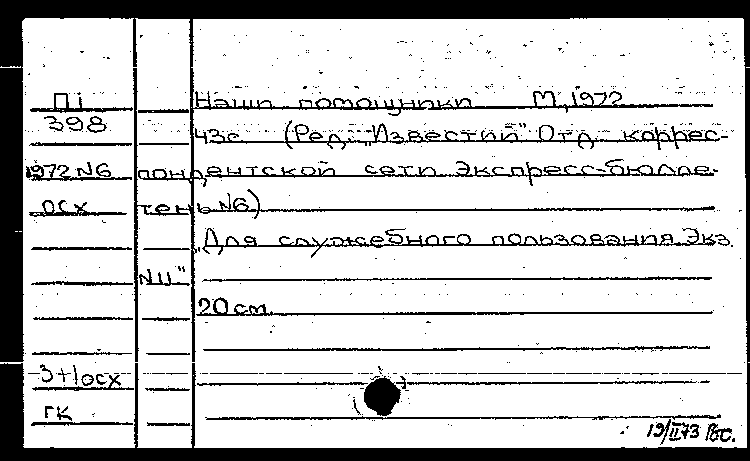 П1 Наши помощники М., 1972
398 43с (Ред. „Известий" Отд. коррес-
1972 N6 пондентской сети Экспресс-бюлле-
осх тень N6)
„Для служебного пользования Экз.
N11"
20 см.
3+1осх
ГК
19/II73